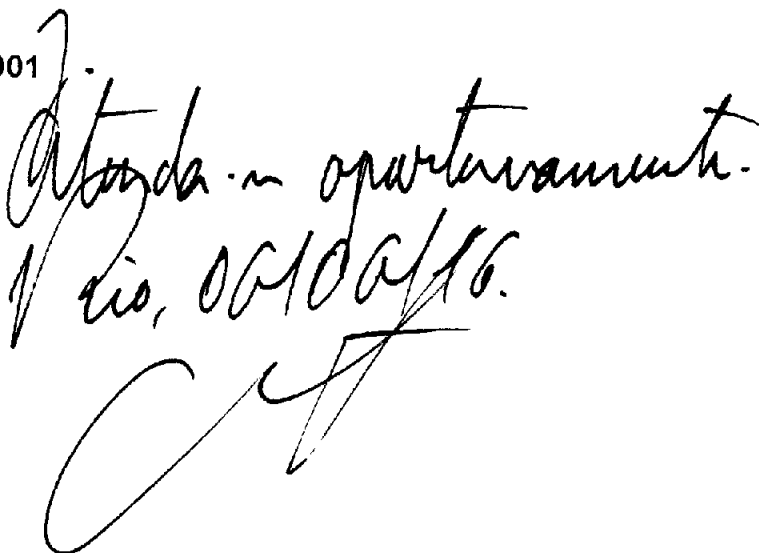 001
J.
Atenda-se oportunamente.
Rio, 06/06/16.